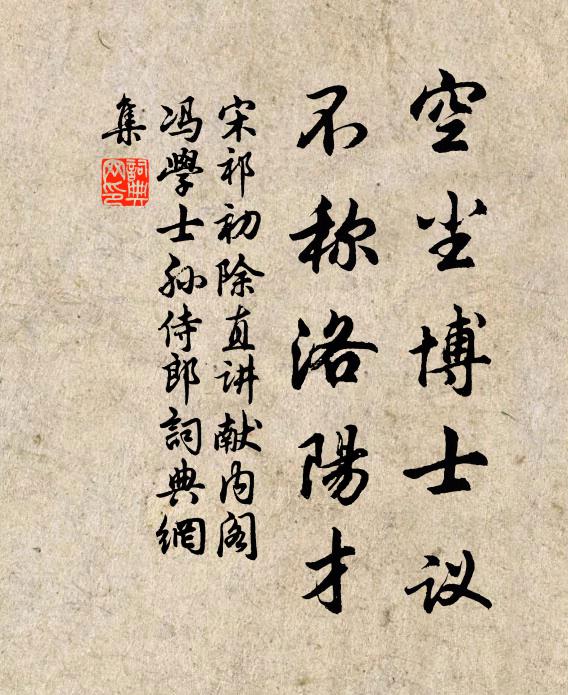 空尘博士议
不称洛陽才
宋祁初除直讲献内阁
冯學士孙侍郎詞典網
集
詞典網印